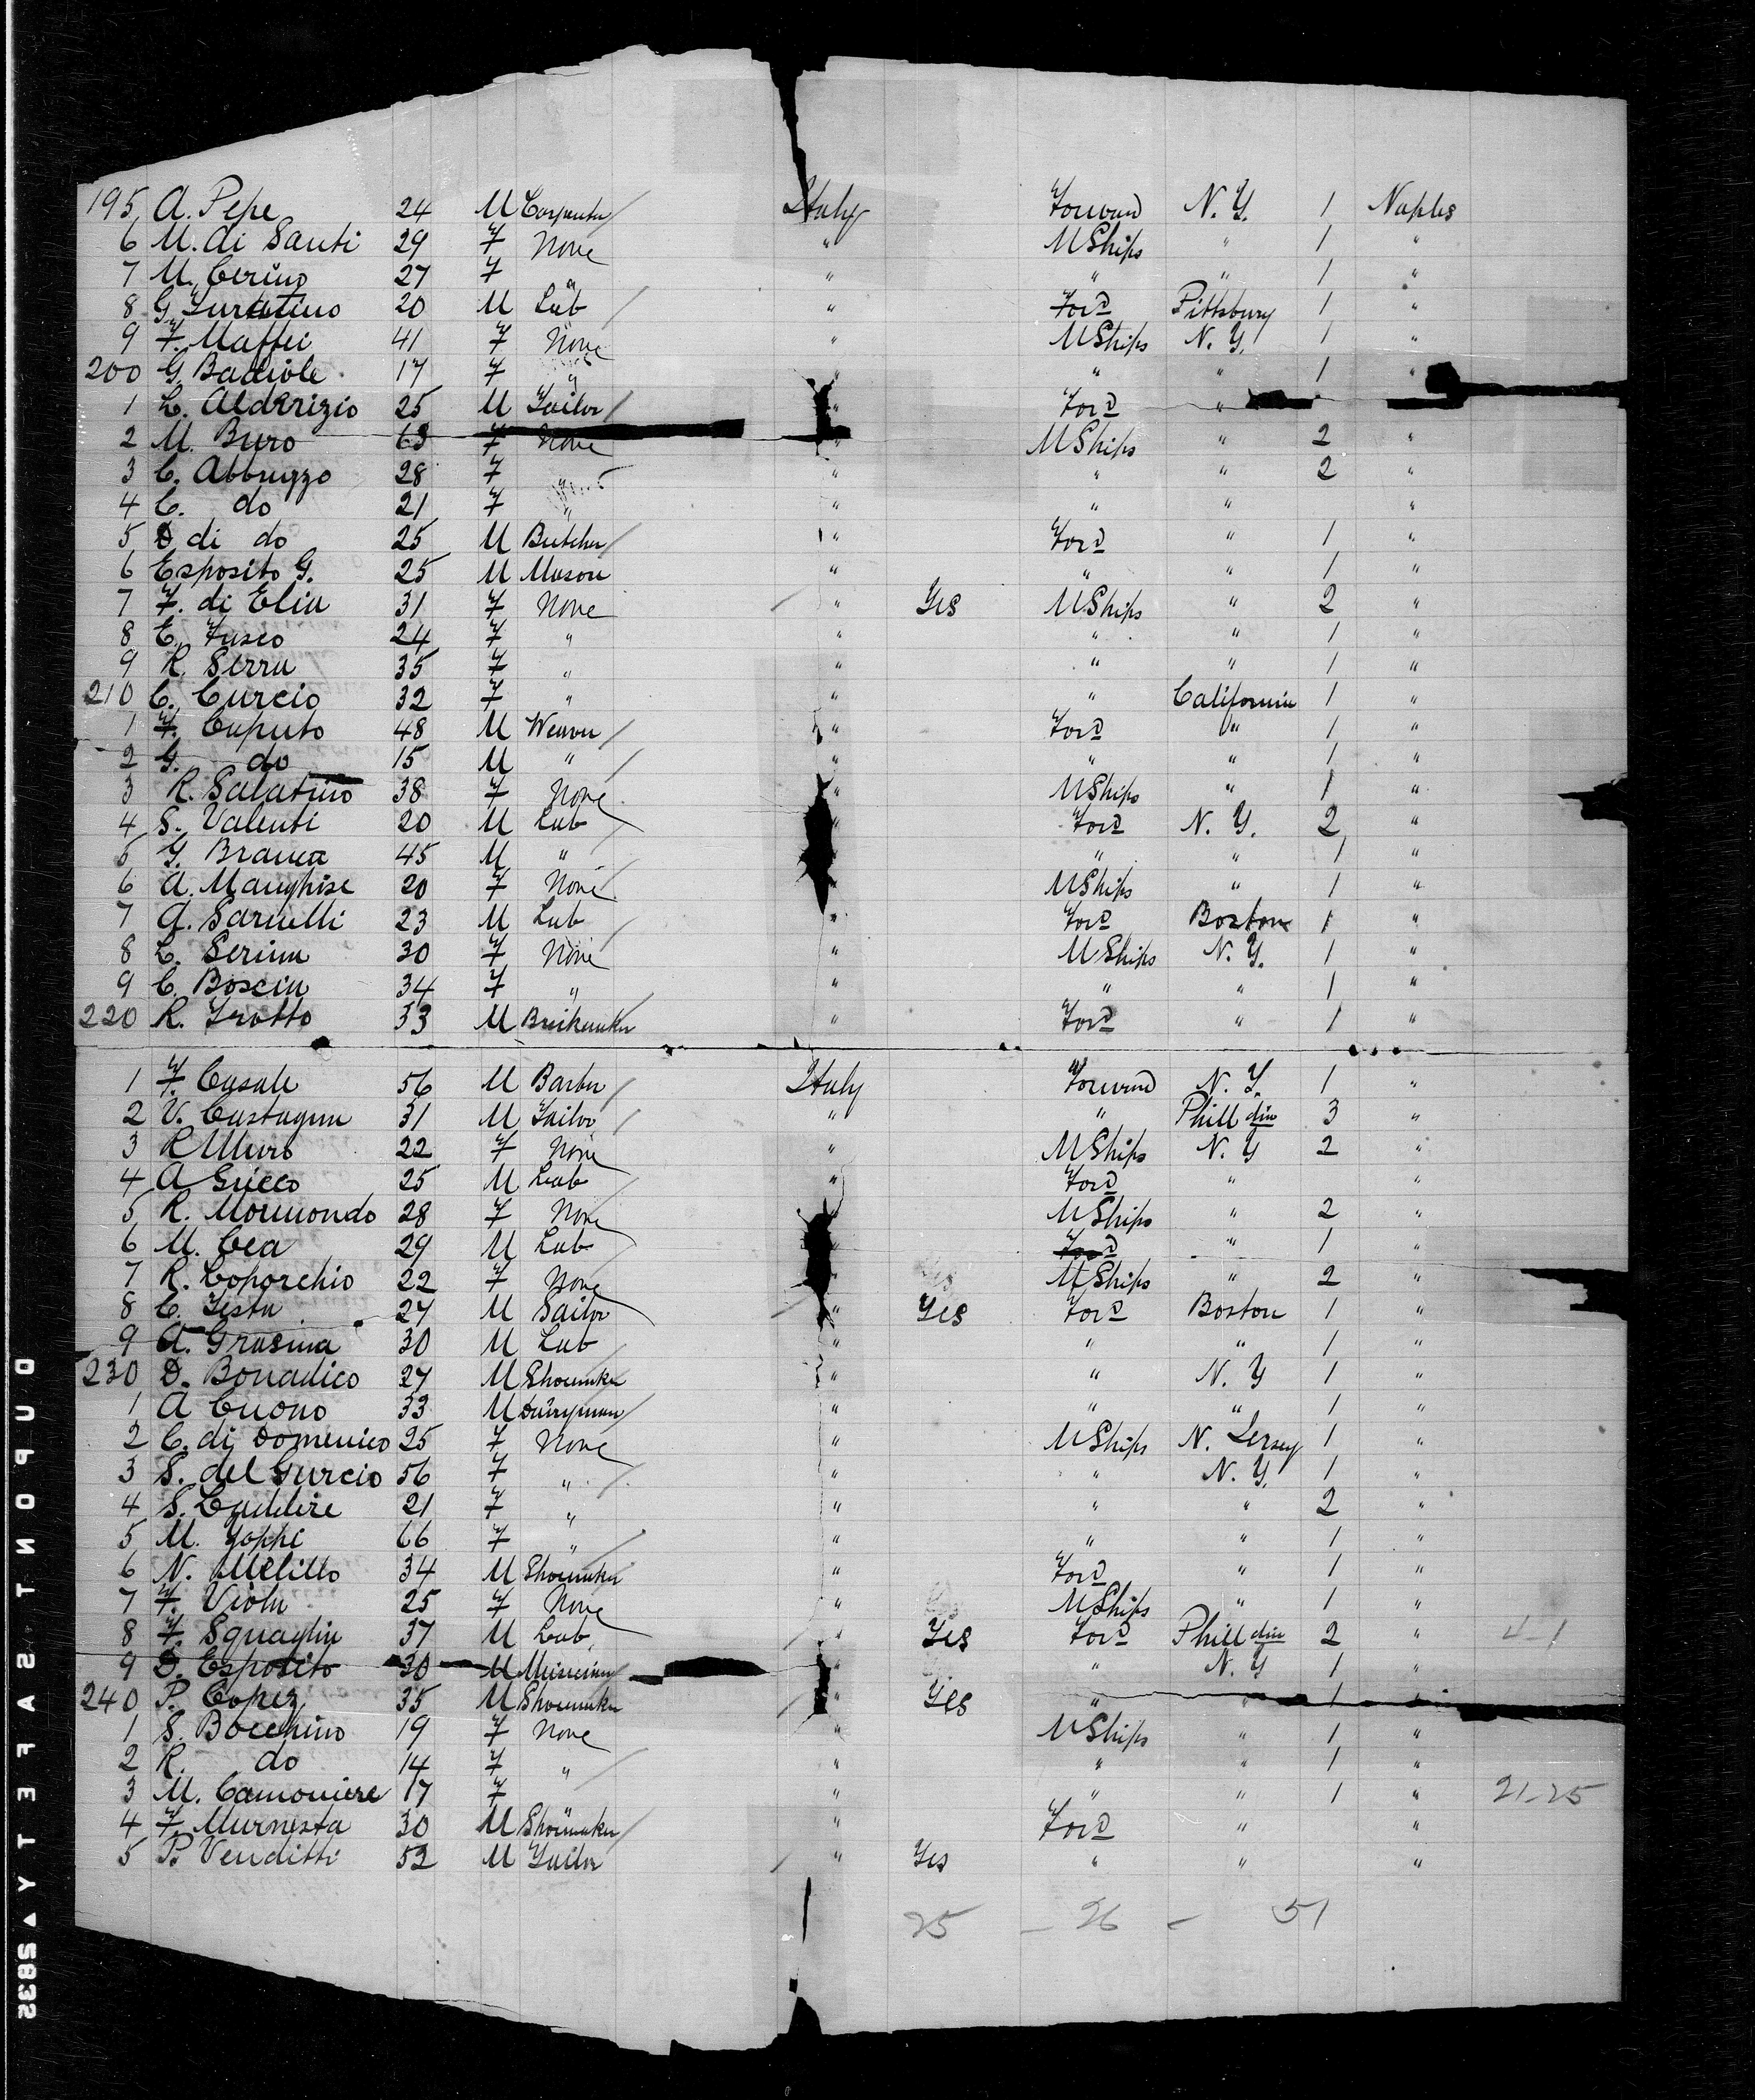 195 A. Pepe 24 M Carpenter Italy Forward N. Y. 1 Naples
6 M. di Santi 29 F None " MShips " 1 "
7 M. Cerino 27 F " " " " 1 "
8 G. 20 M Lab " Ford Pittsburg 1 "
9 F. Maffei 41 F None " MShips N. Y. 1 "
200 G. Badiole 17 F " " " " 1 "
1 L. Alderizio 25 M Tailor " Ford "
2 M. Buro 63 F None " MShips " 2 "
3 C. Abbruzzo 28 F " " " " 2 "
4 C. do 21 F " " " " "
5 D di do 25 M Butcher " Ford " 1 "
6 Esposito G. 25 M Mason " " " 1 "
7 F. di Elia 31 F None " Yes MShips " 2 "
8 C. Fusco 24 F " " " " 1 "
9 R. Serra 35 F " " " " 1 "
210 C. Curcio 32 F " " " California 1 "
1 F. Caputo 48 M Weaver " Ford " 1 "
2 G. do 15 M " " " " 1 "
3 R. Salatino 38 F None " MShips " 1 "
4 S. Valenti 20 M Lab " Ford N. Y. 2 "
5 G. Branca 45 M " " " 1 "
6 A. Manghise 20 F None MShips " 1 "
7 A. Sarnelli 23 M Lab " Ford Boston 1 "
8 L. Serina 30 F None " MShips N. Y. 1 "
9 C. Boscia 34 F " " " " 1 "
220 R. Trotto 33 M " Ford " 1 "
1 F. Casale 56 M Barber Italy Forward N. Y. 1 "
2 V. Castagna 31 M Tailor " " Phill din 3 "
3 R Muro 22 F None " MShips N. Y 2 "
4 A Grieco 25 M Lab " Ford " "
5 R. Mormondo 28 F None MShips " 2 "
6 M. Cea 29 M Lab " Ford " 1 "
7 R. Coporchio 22 F None MShips " 2 "
8 C. Testa 27 M Sailor " Yes Ford Boston 1 "
9 A. Grasina 30 M Lab " " " 1 "
230 D. Bonadico 27 M Shoemaker " " N. Y 1 "
1 A Cuono 33 M Dairyman " " " 1 "
2 C. di Domenico 25 F None " MShips N. Jersey 1 "
3 S. del Gurcio 56 F " " " N. Y. 1 "
4 S. 21 F " " " " 2 "
5 M. Yoppi 66 F " " " " 1 "
6 N. Melillo 34 M Shoemaker " Ford " 1 "
7 F. Viola 25 F None " MShips " 1 "
8 F. Squaglia 37 M Lab " Yes Ford Phill din 2 " 4-1
9 D. Esposito 30 M Musician " " N. Y 1 "
240 P. Copez 35 M Shoemaker " Yes " " 1 "
1 S. Bocchino 19 F None " MShips " 1 "
2 R. do 14 F " " " " 1 "
3 M. Camoniere 17 F " " " 1 " 21-25
4 F. Murnesta 30 M Shoemaker " Ford " "
5 P. Venditti 52 M Tailor " Yes " " "
25 - 26 - 51
DUPONT SAFETY ▲ S832